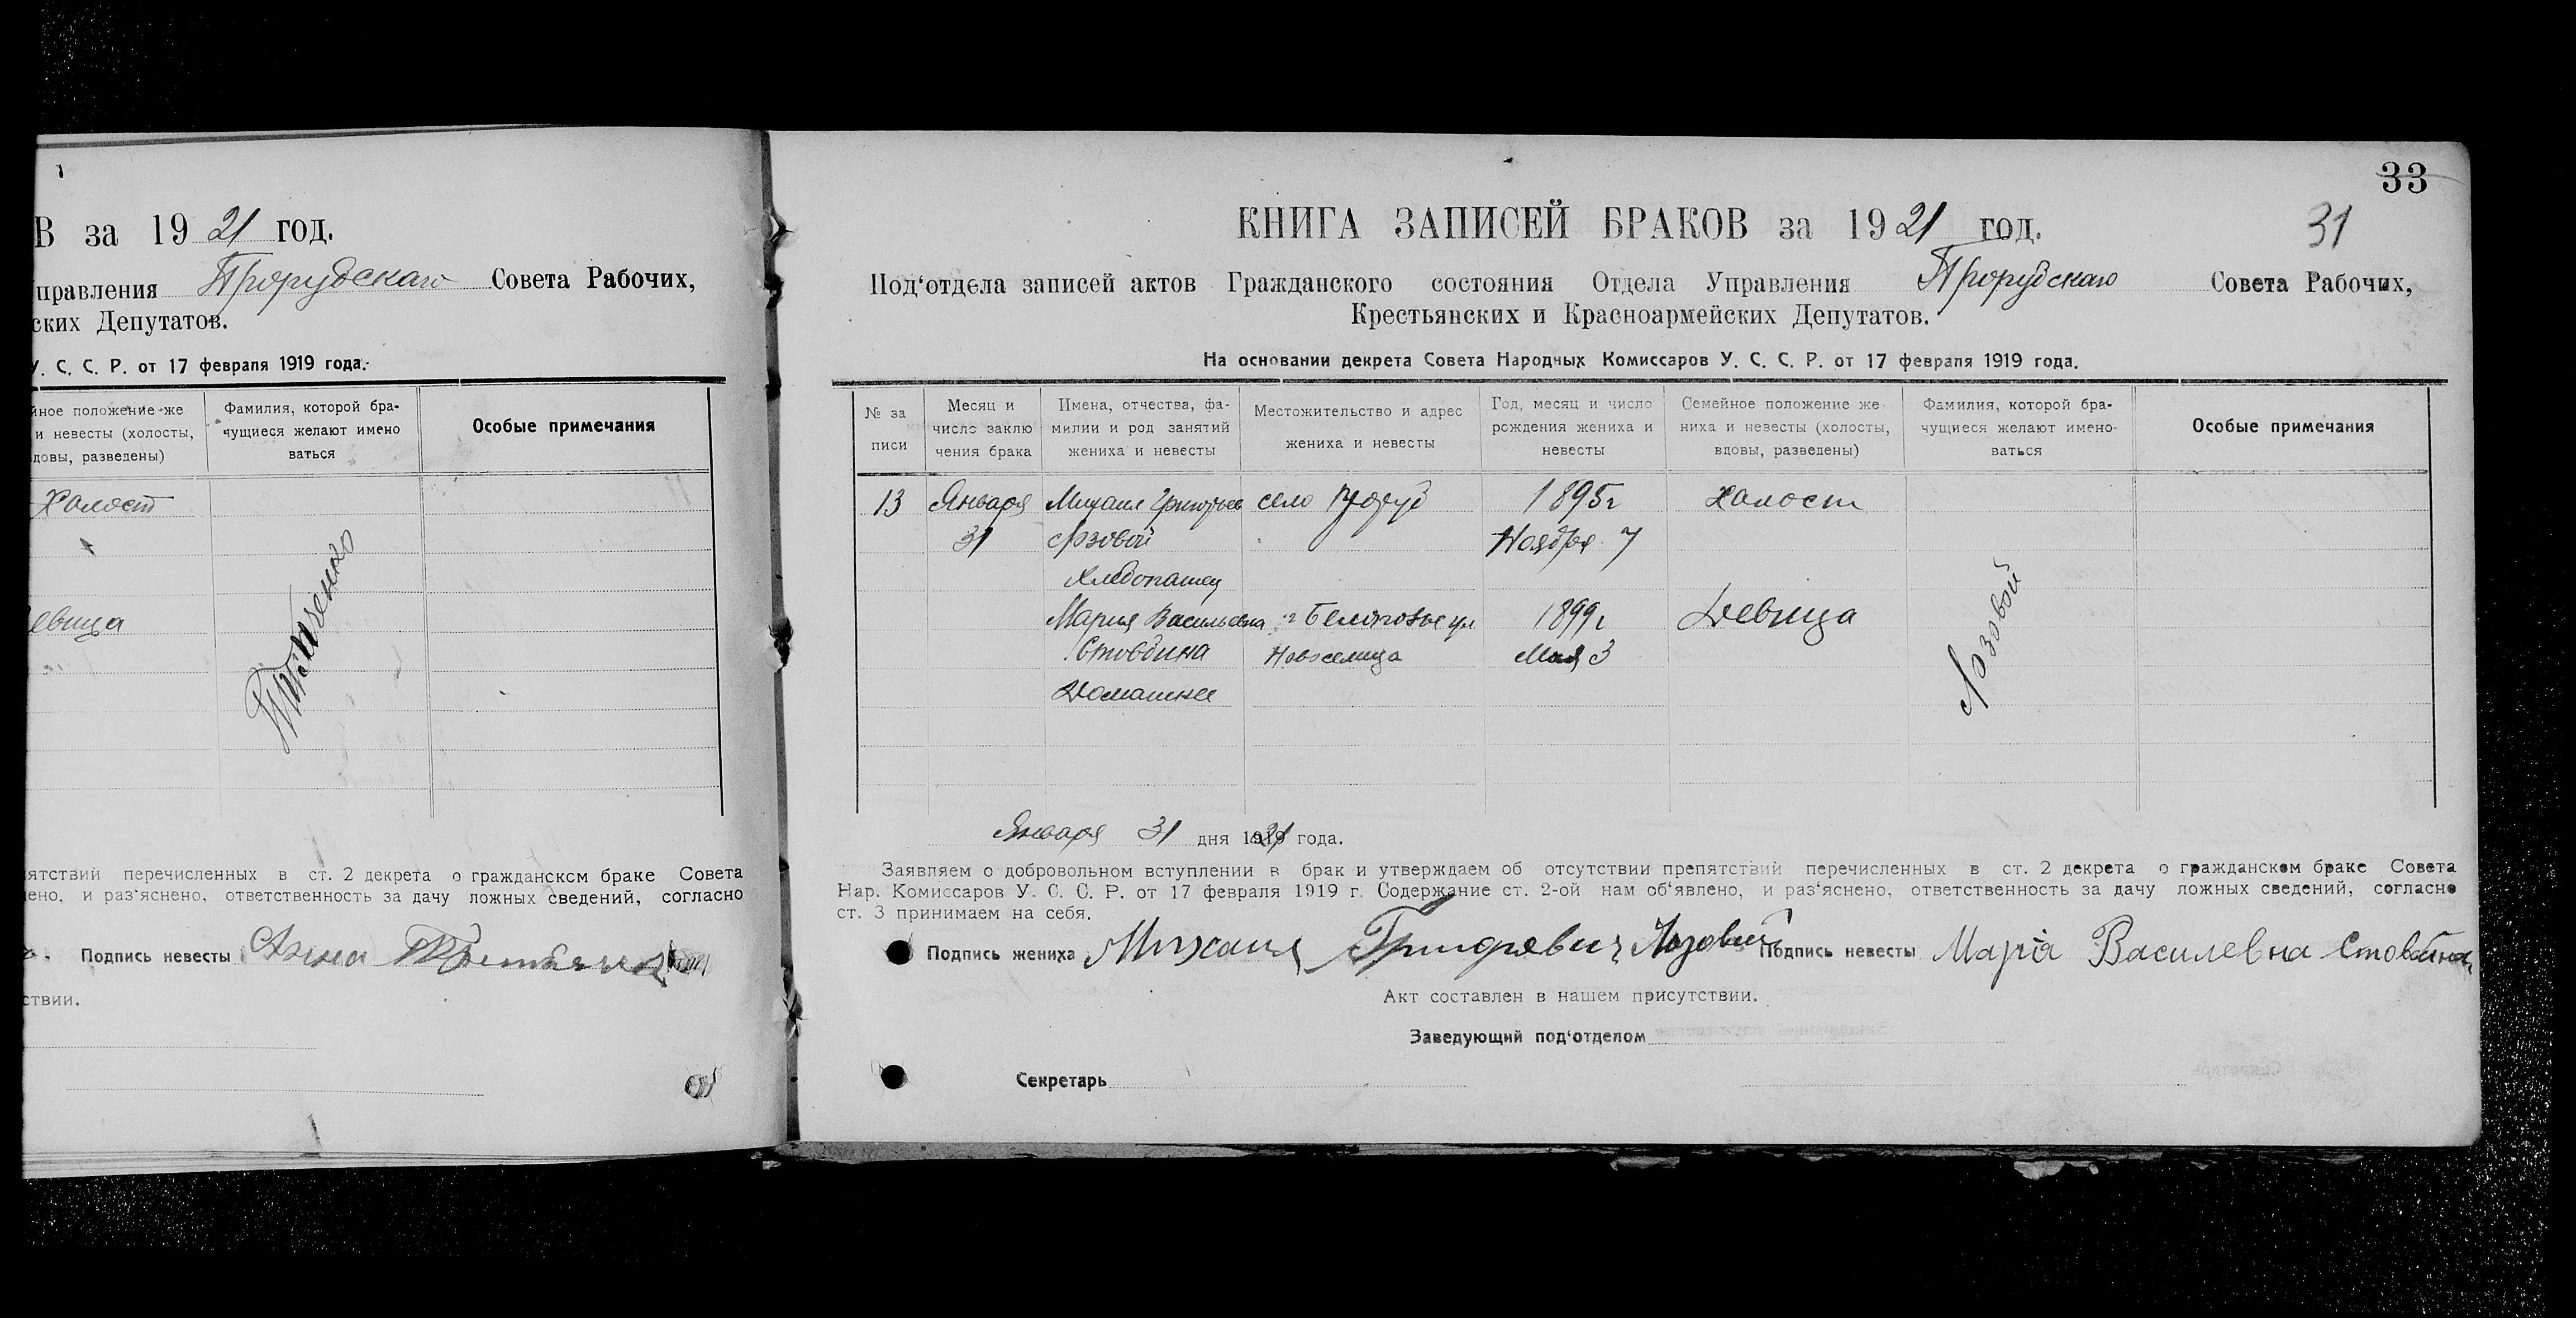 В за 1921 год.
правления Прорубскаго Совета Рабочих,
ских Депутатов.
У. С. С. Р. от 17 февраля 1919 года.
йное положение же
и невесты (холосты,
довы, разведены)
Фамилия, которой бра-
чущиеся желают имено
ваться
Особые примечания
Холост
евица
пятствий перечисленных в ст. 2 декрета о гражданском браке Совета
лено, и раз‘яснено, ответственность за дачу ложных сведений, согласно
Подпись невесты Анна
ствии.
33
31
КНИГА ЗАПИСЕЙ БРАКОВ за 1921 год.
Под‘отдела записей актов Гражданского состояния Отдела Управления Прорубскаго Совета Рабочих,
Крестьянских и Красноармейских Депутатов.
На основании декрета Совета Народных Комиссаров У. С. С. Р. от 17 февраля 1919 года.
№ за
писи
Месяц и
число заклю
чения брака
Имена, отчества, фа-
милии и род занятий
жениха и невесты
Местожительство и адрес
жениха и невесты
Год, месяц и число
рождения жениха и
невесты
Семейное положение же
ниха и невесты (холосты,
вдовы, разведены)
Фамилия, которой бра-
чущиеся желают имено-
ваться
Особые примечания
13 Января Михаил Григорьев село Проруб 1895г Холост
31 Лозовой Ноября 7
Хлебопашец
Мария Васильевна г Белополье ул 1899г Девица
Стовбина Новоселица Мая 3
Домашнее
Лозовой
Января 31 дня 1921 года.
Заявляем о добровольном вступлении в брак и утверждаем об отсутствии препятствий перечисленных в ст. 2 декрета о гражданском браке Совета
Нар. Комиссаров У. С. С. Р. от 17 февраля 1919 г. Содержание ст. 2-ой нам об‘явлено, и раз‘яснено, ответственность за дачу ложных сведений, согласно
ст. 3 принимаем на себя.
Подпись жениха Михаил Григоревич Лозовий Подпись невесты Марiа Василевна Стовбина
Акт составлен в нашем присутствии.
Заведующий под‘отделом
Секретарь